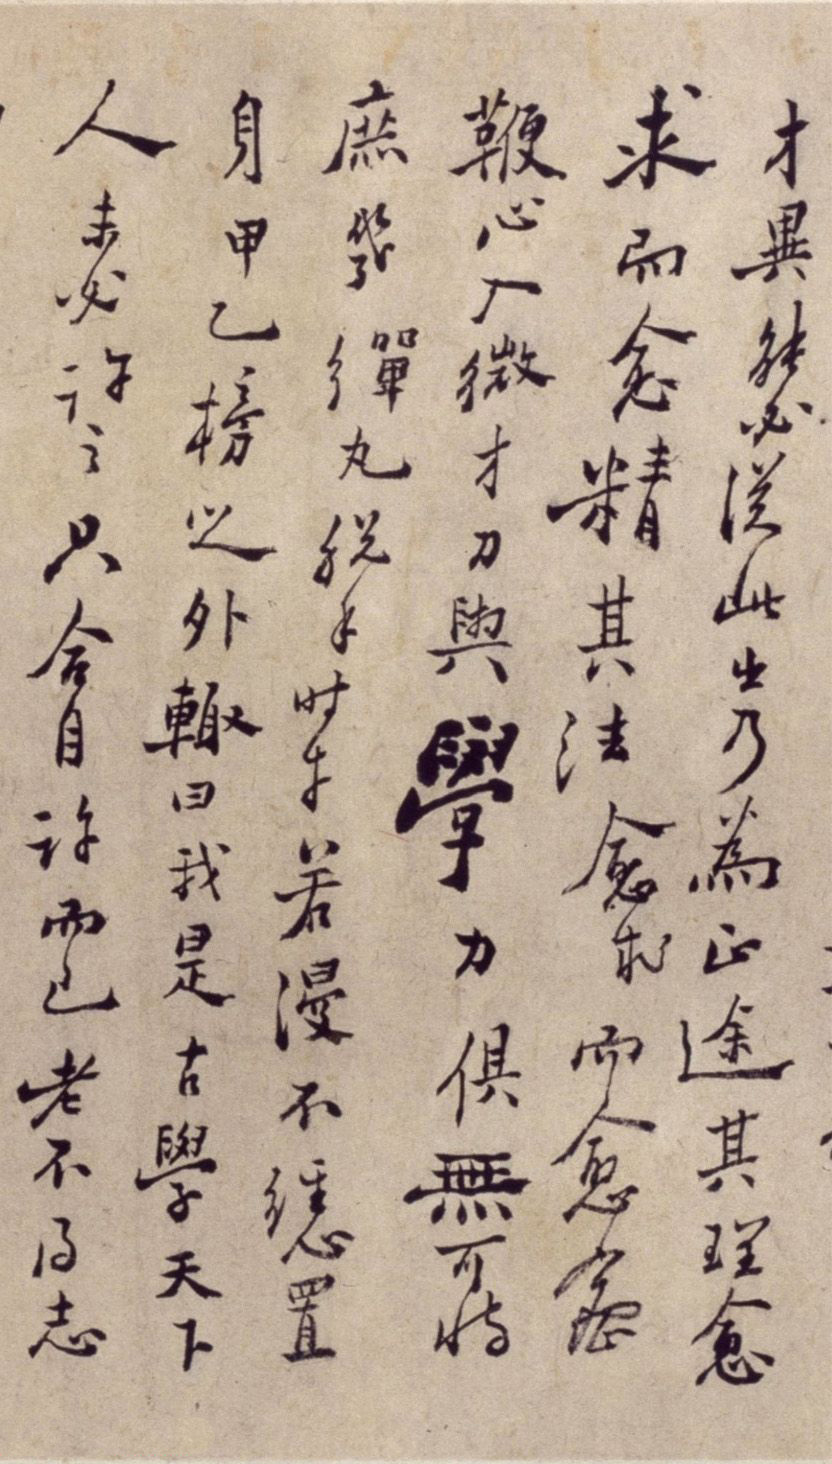 才異能必從此出乃為正途其理愈
求而愈精其法愈求而愈密
鞭心入微才力與學力俱無可恃
庶幾彈丸脫手時乎若漫不經思置
身甲乙榜之外輙曰我是古學天下
人未必許之只合自許而已老不得志